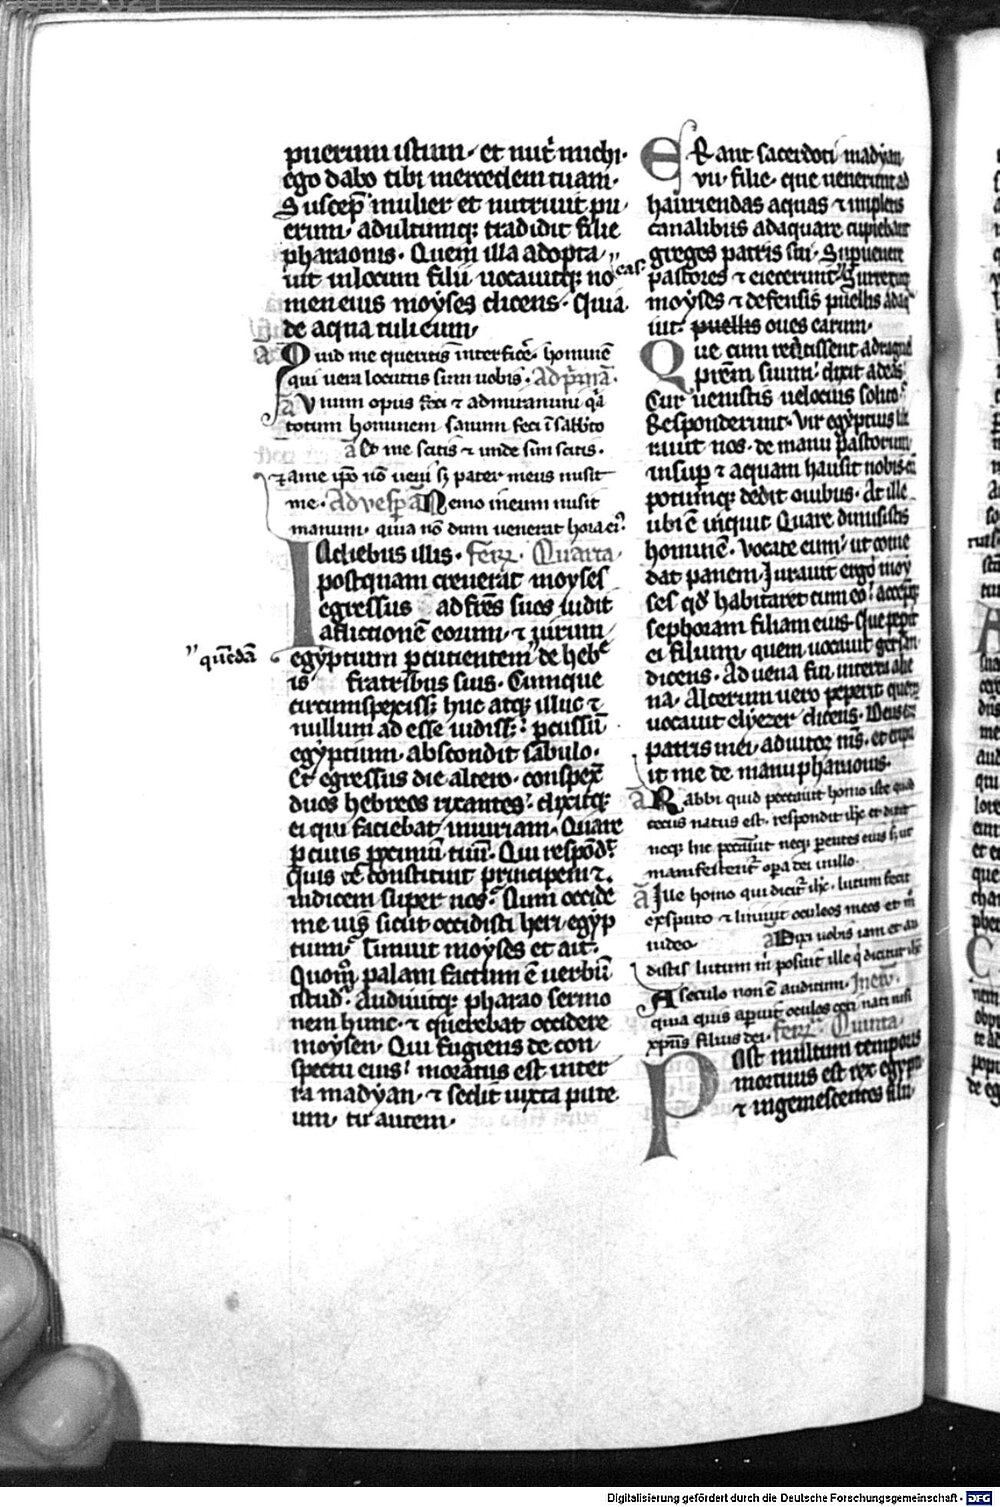 puerum istum · et nut̉ michi ·
ego dabo tibi mercedem tuam ·
Suscep̄ mulier et nutriuit pu
erum · adultumq; tradidit filie
pharaonis · Quem illa adopta
uit inlocum filii uocauitq; no
men eius moyses dicens · Quia
de aqua tuli eum ·
a Quid me queritis interficẽ · hominē
qui uera locutus sum uobis · Ad p̄mā ·
a Vnum opus feci ⁊ admiramini q̄a
totum hominem sanum feci ī sabbto
a Et me scitis ⁊ unde sim scitis ·
⁊ a me ip̄o nō ueni s; pater meus misit
me · Ad vesp̄ a Nemo in eum misit
manum · quia nō dum uenerat hora ei9
In diebus illis · feria Quarta ·
postquam creuerat moyses
egressus ad fr̄es suos uidit
aflictionē eorum · ⁊ uirum
" quēdā
egyptium p̄cutientem " de heb̄e
is fratribus suis · Cumque
circumspexiss; huc atq; illuc ⁊
nullum ad esse uidiss; p̄cussū
egyptium · abscondit sabulo ·
Et egressus die altero · conspex̄
duos hebreos rixantes · dixitq;
ei qui faciebat iniuriam · Quare
p̄cutis p̄ximū tuū · Qui respōd̄
quis te constituit principem ⁊
iudicem super nos · Num occide
me uis sicut occidisti heri egyp
tium · Timuit moyses et ait ·
Quom̊ palam factum ē uerbū
istud · Audiuitq; pharao sermo
nem hunc · ⁊ querebat occidere
moysen · Qui fugiens de con
spectu eius moratus est in ter
ra madyan · ⁊ sedit iuxta pute
um · tu autem ·
Erant sacerdoti madyan
vii · filie · que uenerunt ad
hauriendas aquas ⁊ impletis
canalibus adaquare cupiebant
greges patris sui · Supuenerūt
pastores ⁊ eiecerunt " eas · Surrexitq;
moyses ⁊ defensis puellis adaq
uit · puellis oues earum ·
Que cum reuertissent ad raguel
p̄rem suum · dixit ad eas
Cur uenistis uelocius solito
Responderunt · Vir egyptius libe
rauit nos · de manu pastorum
insup̄ ⁊ aquam hausit nobiscū
potumq; dedit ouibus · At ille
ubi ē inquit Quare dimisistis
hominē · vocate eum · ut come
dat panem · Jurauit ergo moy
ses qd̄ habitaret cum eo · accepitq;
sephoram filiam eius · Que peperit
ei filium · quem uocauit gersan
dicens · Aduena fui in terra alie
na · Alterum uero peperit quem
uocauit elyezer dicens · Deus
patris mei · adiutor m̄s · et eripu
it me de manu pharaonis ·
a Rabbi quid peccauit homo iste quod
cecus natus est · respondit ih̄c et dixit
neq; hic peccauit neq; parentes eius s; ut
manifestent̉ opa dei in illo ·
a Ille homo qui dicit̉ ih̄c · lutum fecit
ex sputo ⁊ liniuit oculos meos et m̊
uideo · a Dixi uobis iam et au
distis lutum m̊ posuit ille q̊ dicitur ih̄c
A seculo non ē auditum · In ew̄ ·
quia quis aperuit oculos ceci nati nisi
xp̄us filius dei · feria Quinta ·
Post multum temporis
mortuus est rex egypti
⁊ ingemescentes filii
Digitalisierung gefördert durch die Deutsche Forschungsgemeinschaft - DFG